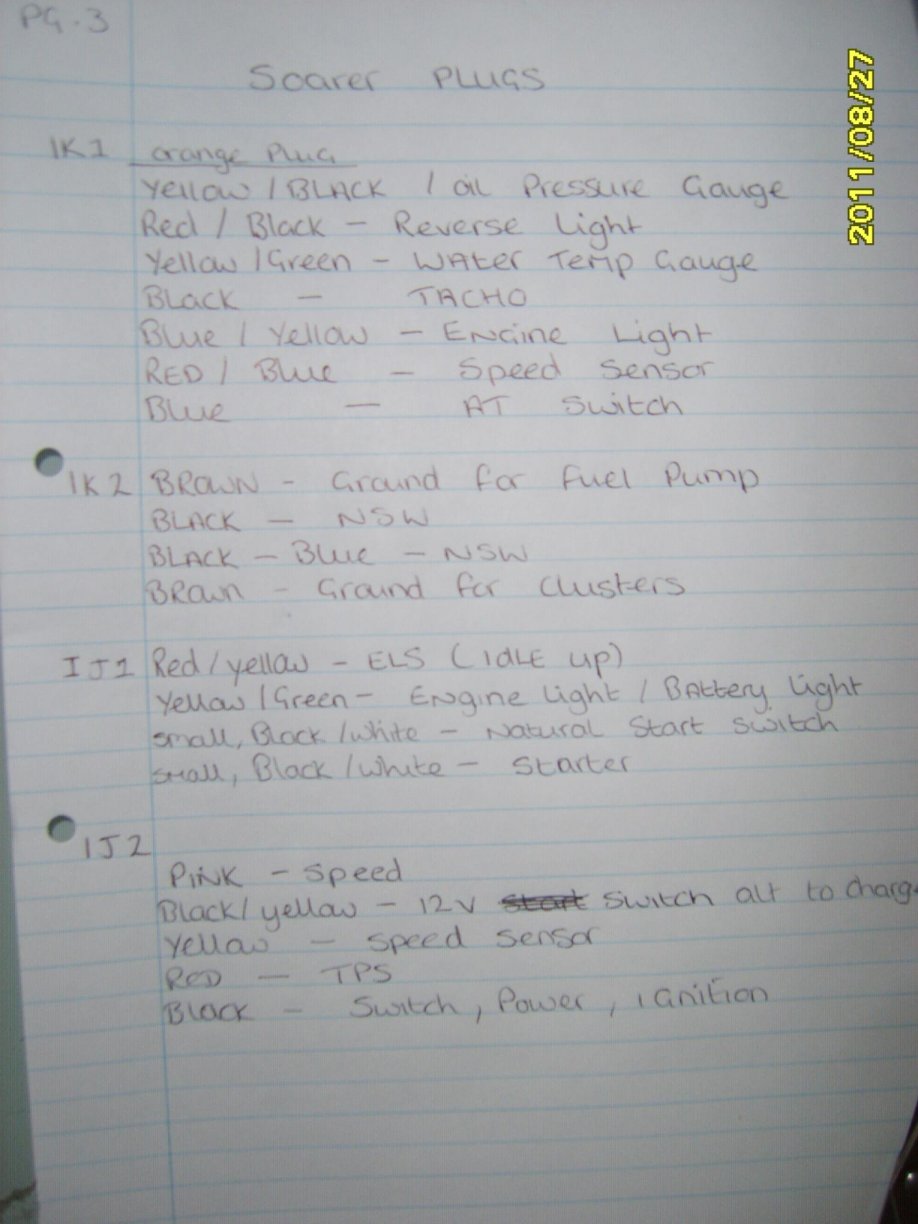 PG.3
Soarer PLUGS
IK1 orange Plug
Yellow / BLACK / oil Pressure Gauge
Red / Black - Reverse Light
Yellow / Green - WAter Temp Gauge
BLack - TACHO
Blue / Yellow - Engine Light
RED / Blue - Speed Sensor
Blue - AT Switch
IK2 BROWN - Ground for fuel Pump
BLACK - NSW
BLACK - Blue - NSW
BRown - Ground for clusters
IJ1 Red / yellow - ELS (IDLE up)
Yellow / Green - Engine light / BAttery light
small, Black / white - Natural Start Switch
small, Black / white - Starter
IJ2
PINK - Speed
Black / yellow - 12V start Switch alt to charg
Yellow - Speed Sensor
RED - TPS
Black - Switch, Power, ignition
2011/08/27